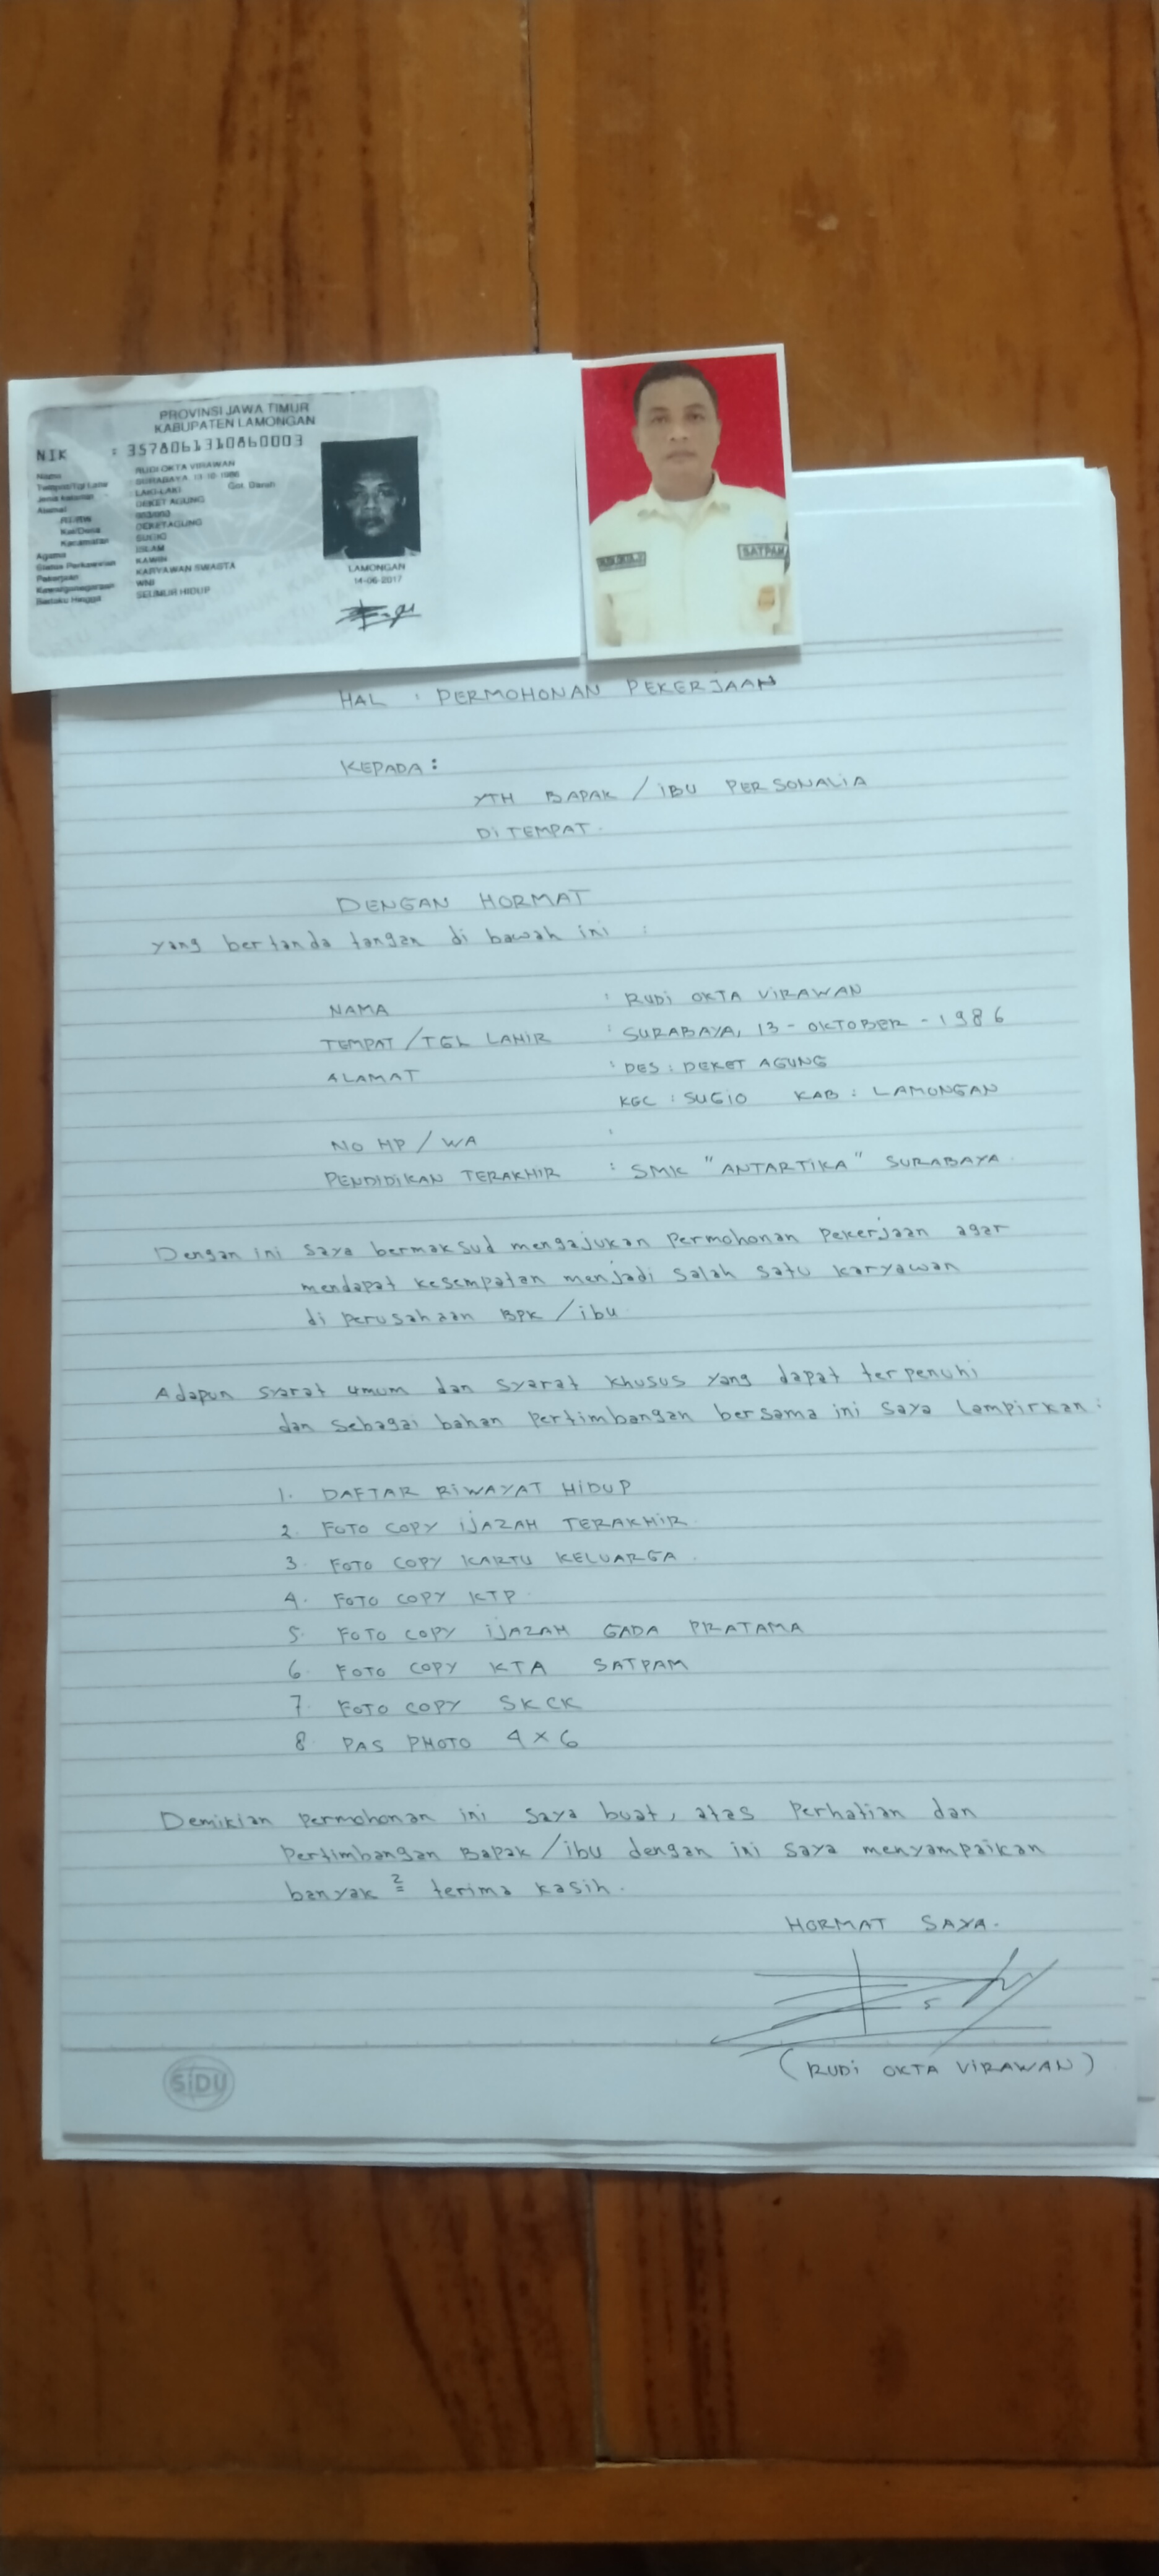 PROVINSI JAWA TIMUR
KABUPATEN LAMONGAN
NIK : 3578061310860003
Nama : RUDI OKTA VIRAWAN
Tempat/Tgl Lahir : SURABAYA, 13-10-1986
Jenis kelamin : LAKI-LAKI Gol. Darah
Alamat : DEKET AGUNG
RT/RW : 003/003
Kel/Desa : DEKETAGUNG
Kecamatan : SUGIO
Agama : ISLAM
Status Perkawinan : KAWIN
Pekerjaan : KARYAWAN SWASTA
Kewarganegaraan : WNI
Berlaku Hingga : SEUMUR HIDUP
LAMONGAN
14-06-2017
SATPAM
HAL : PERMOHONAN PEKERJAAN
KEPADA :
YTH BAPAK / iBU PERSONALIA
Di TEMPAT.
DENGAN HORMAT
yang bertanda tangan di bawah ini :
NAMA : RUDi OKTA ViRAWAN
TEMPAT / TGL LAHIR : SURABAYA, 13 - OKTOBER - 1986
ALAMAT : DES : DEKET AGUNG
KEC : SUGIO KAB : LAMONGAN
NO HP / WA :
PENDIDIKAN TERAKHIR : SMK "ANTARTiKA" SURABAYA
Dengan ini saya bermaksud mengajukan permohonan pekerjaan agar
mendapat kesempatan menjadi salah satu karyawan
di perusahaan BPK / ibu
Adapun syarat umum dan syarat khusus yang dapat terpenuhi
dan sebagai bahan pertimbangan bersama ini saya lampirkan :
1. DAFTAR RiWAYAT HiDUP
2. FOTO COPY iJAZAH TERAKHiR.
3. FOTO COPY KARTU KELUARGA.
4. FOTO COPY KTP.
5. FOTO COPY iJAZAH GADA PRATAMA
6. FOTO COPY KTA SATPAM
7. FOTO COPY SKCK
8. PAS PHOTO 4 x 6
Demikian permohonan ini saya buat, atas perhatian dan
pertimbangan Bapak / ibu dengan ini saya menyampaikan
banyak ² terima kasih.
HORMAT SAYA.
(RUDi OKTA ViRAWAN)
SiDU